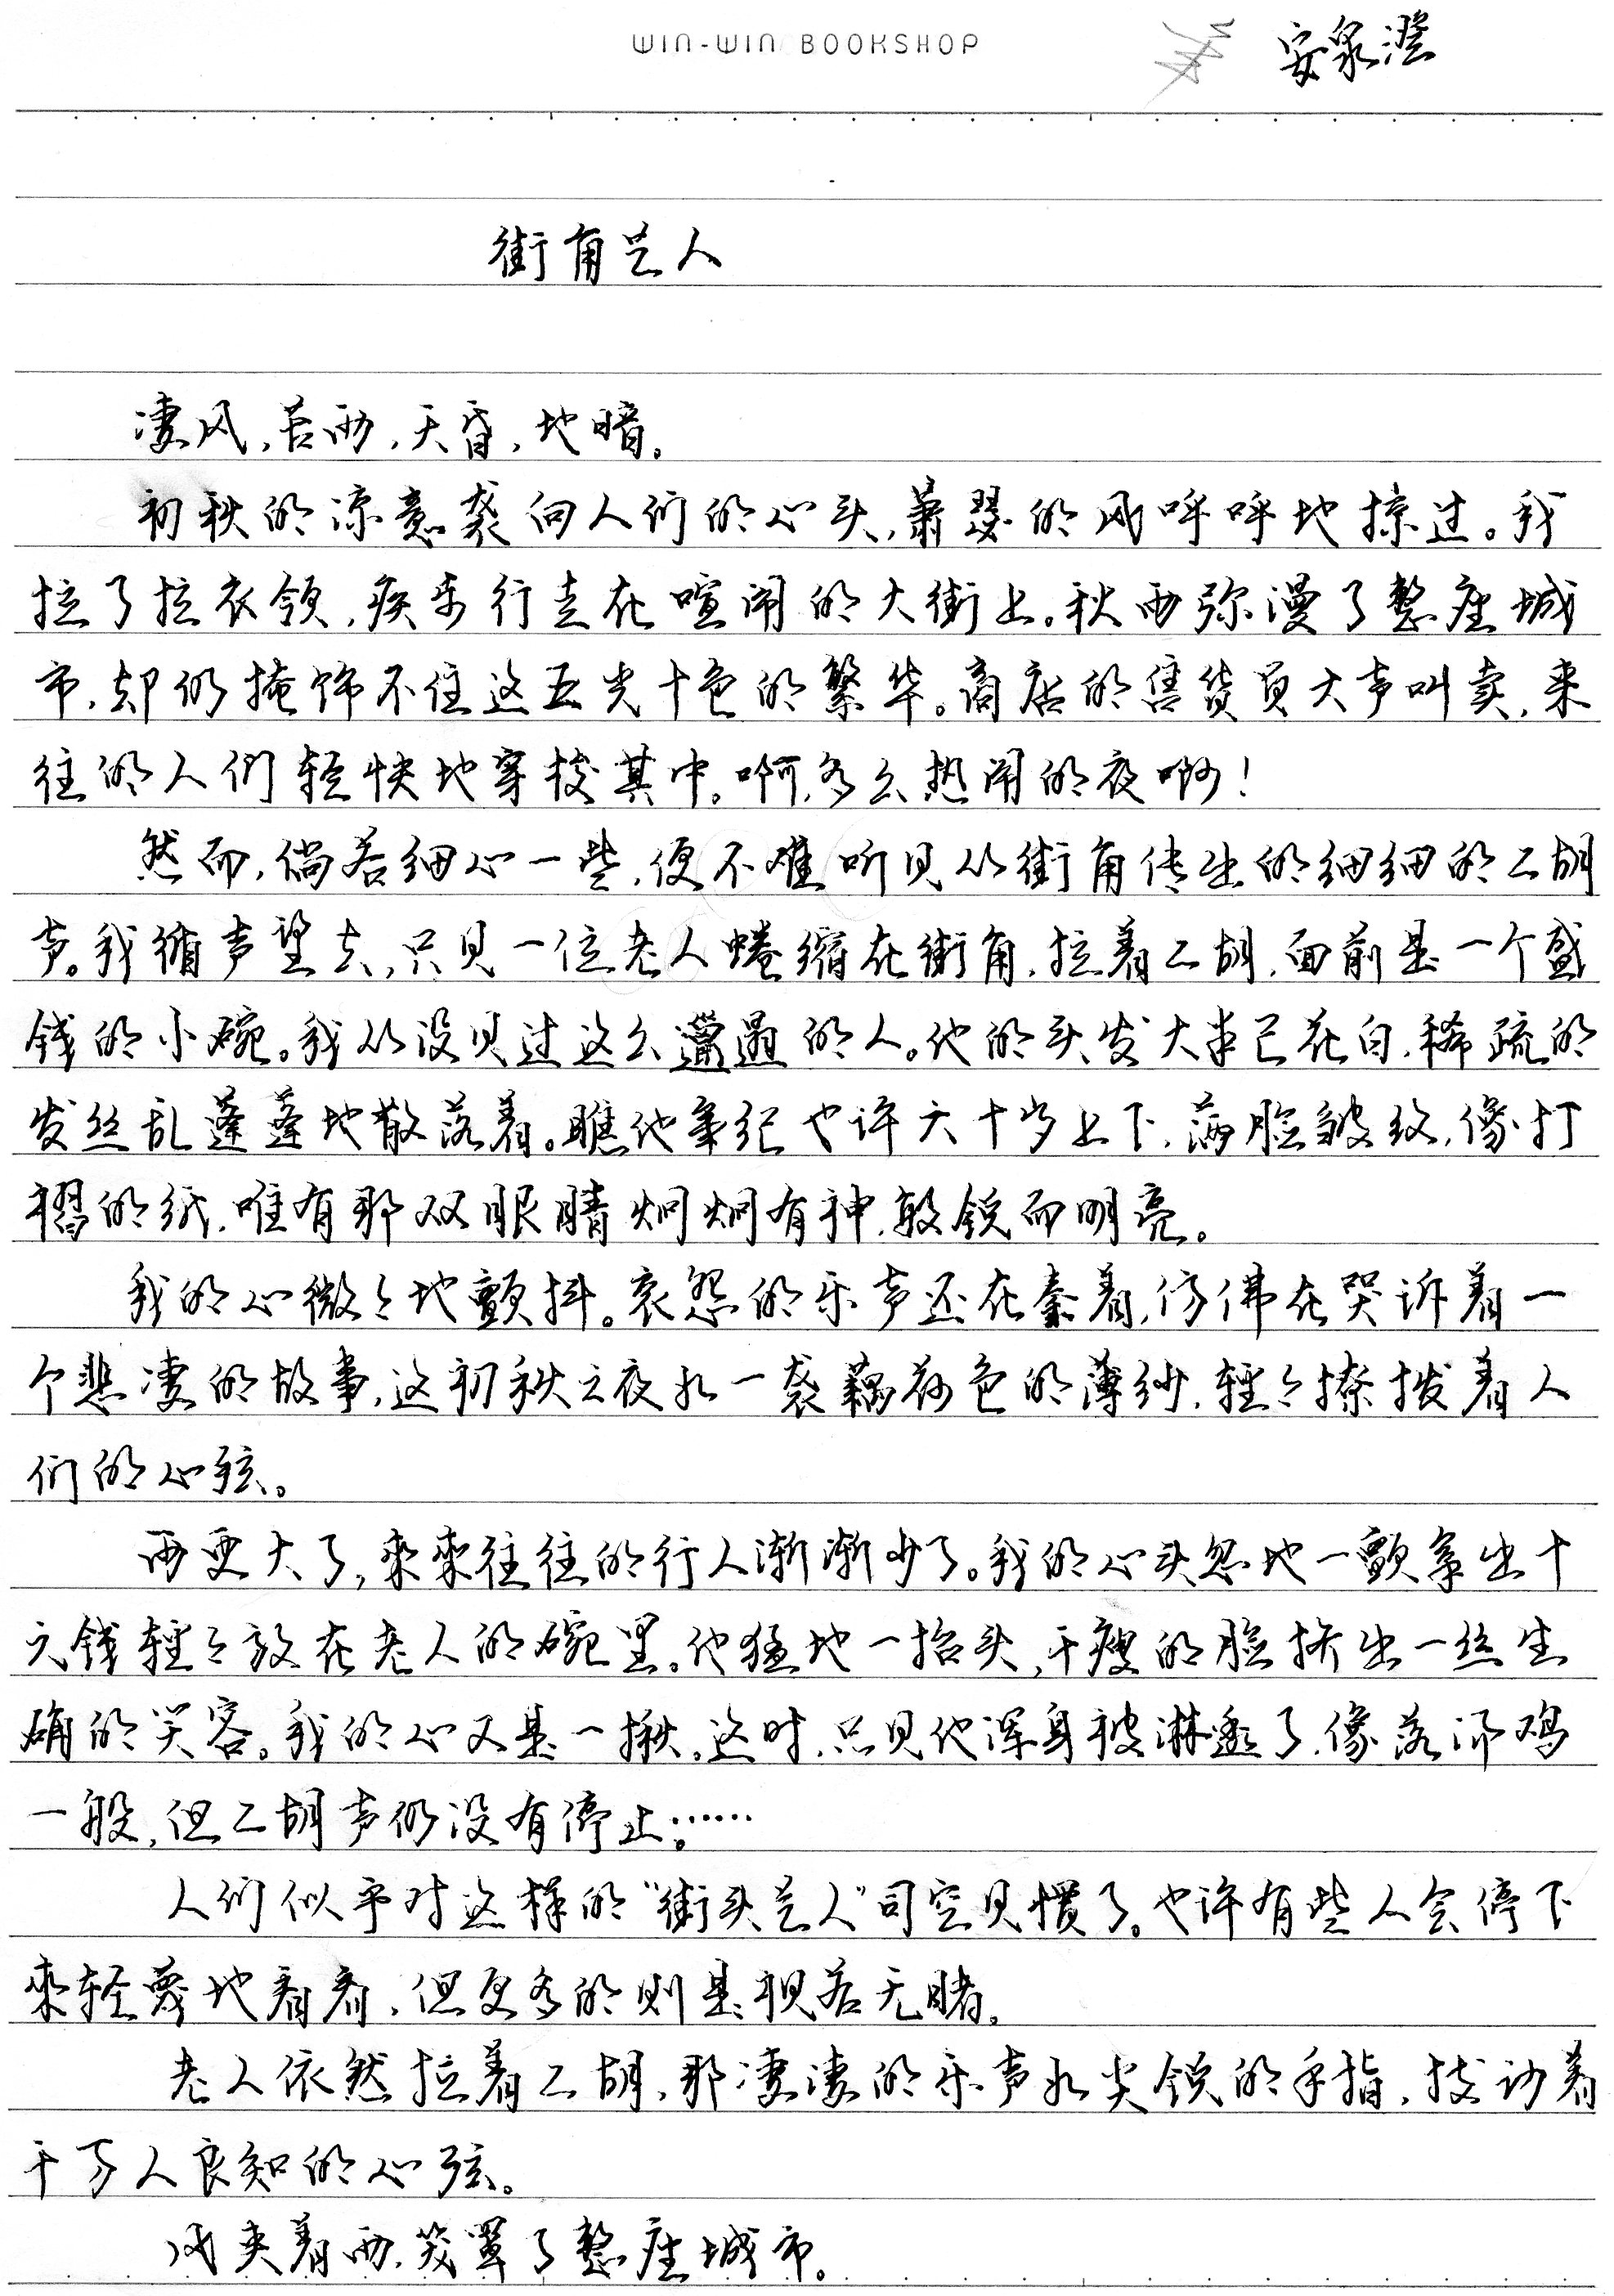 WIN-WIN BOOKSHOP
安泉澄
街角艺人
凄风,苦雨,天昏,地暗。
初秋的凉意袭向人们的心头,萧瑟的风呼呼地掠过。我
拉了拉衣领,疾步行走在喧闹的大街上。秋雨弥漫了整座城
市,却仍掩饰不住这五光十色的繁华。商店的售货员大声叫卖,来
往的人们轻快地穿梭其中。啊,多么热闹的夜啊!
然而,倘若细心一些,便不难听见从街角传出的细细的二胡
声。我循声望去,只见一位老人蜷缩在街角,拉着二胡,面前是一个盛
钱的小碗。我从没见过这么邋遢的人。他的头发大半已花白,稀疏的
发丝乱蓬蓬地散落着。瞧他年纪也许六十岁上下,满脸皱纹,像打
褶的纸,唯有那双眼睛炯炯有神,敏锐而明亮。
我的心微々地颤抖。哀怨的乐声还在奏着,仿佛在哭诉着一
个悲凄的故事,这初秋之夜如一袭藕荷色的薄纱,轻々撩拨着人
们的心弦。
雨更大了,来来往往的行人渐渐少了。我的心头忽地一颤拿出十
元钱轻々放在老人的碗里。他猛地一抬头,干瘦的脸挤出一丝生
硬的笑容。我的心又是一揪。这时,只见他浑身被淋透了,像落汤鸡
一般,但二胡声仍没有停止。……
人们似乎对这样的“街头艺人”司空见惯了。也许有些人会停下
来轻蔑地看看,但更多的则是视若无睹。
老人依然拉着二胡,那凄凄的乐声如尖锐的手指,拨动着
千万人良知的心弦。
风夹着雨,笼罩了整座城市。